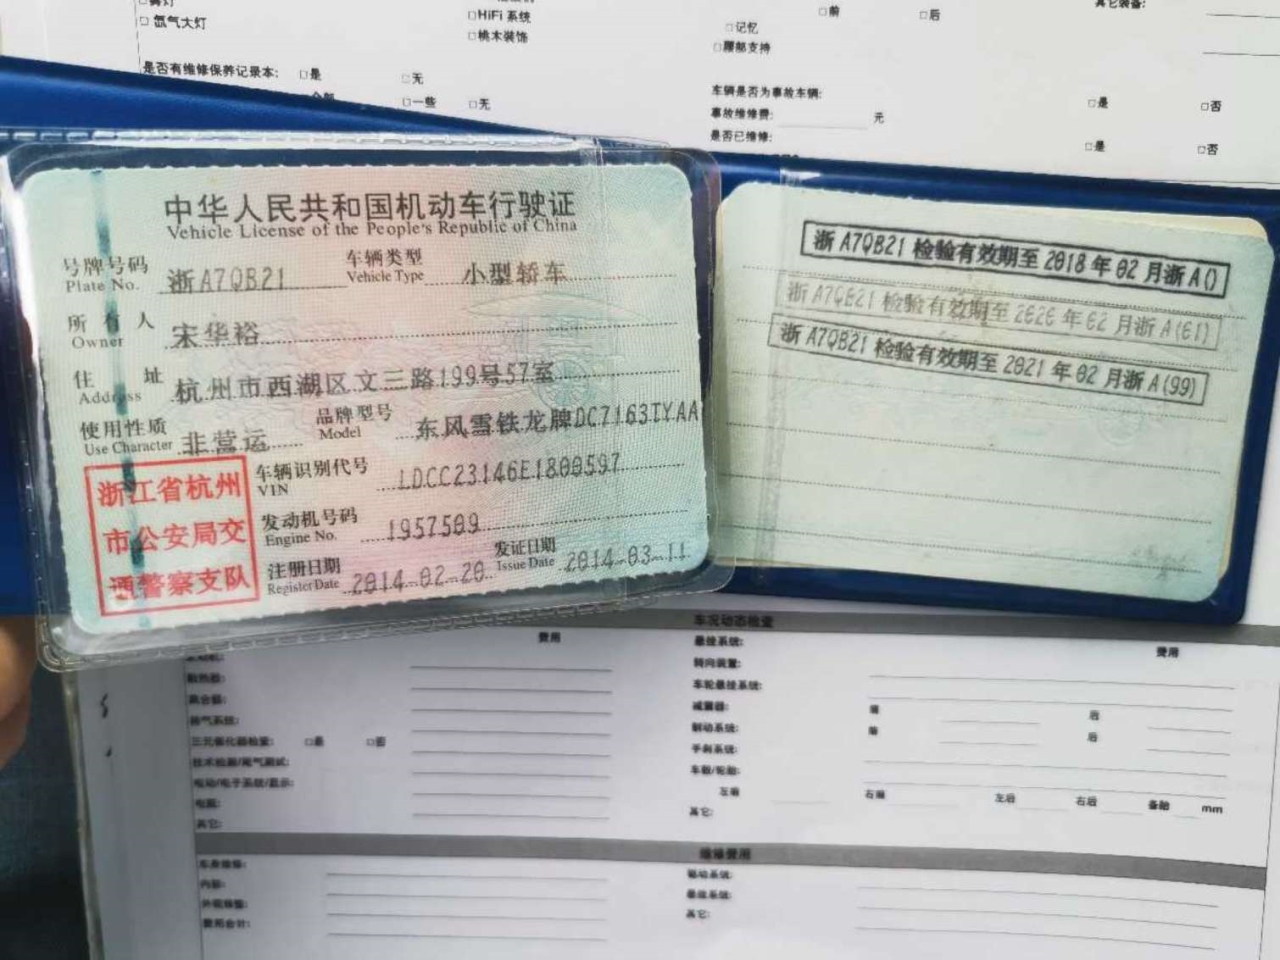 □ 氙气大灯
□HiFi 系统
□桃木装饰
是否有维修保养记录本: □是 □无
□一些 □无
□前 □后
其它装备:
□记忆
□腰部支持
车辆是否为事故车辆: □是 □否
事故维修费: 元
是否已维修: □是 □否
中华人民共和国机动车行驶证
Vehicle License of the People's Republic of China
号牌号码 浙A7QB21 车辆类型 小型轿车
Plate No. Vehicle Type
所有人 宋华裕
Owner
住址 杭州市西湖区文三路199号57室
Address
使用性质 非营运 品牌型号 东风雪铁龙牌DC7163TYAA
Use Character Model
浙江省杭州
市公安局交
通警察支队
车辆识别代号 LDCC23146E1800597
VIN
发动机号码 1957509
Engine No.
注册日期 2014-02-20 发证日期 2014-03-11
Register Date Issue Date
浙A7QB21 检验有效期至 2018 年 02 月浙A()
浙A7QB21 检验有效期至 2020 年 02 月浙A(61)
浙A7QB21 检验有效期至 2021 年 02 月浙A(99)
车况动态检查
费用
散热器:
离合器:
排气系统:
三元催化器检查: □是 □否
技术检测/尾气测试:
电动/电子系统/显示:
电瓶:
其它:
悬挂系统: 费用
转向装置:
车轮悬挂系统:
减震器: 前 后
制动系统: 前 后
手刹系统:
车毂/轮胎:
左前 右前 左后 右后 备胎 mm
其它:
维修费用
车身维修:
内部:
外观修整:
费用合计:
驱动系统:
悬挂系统:
其它: